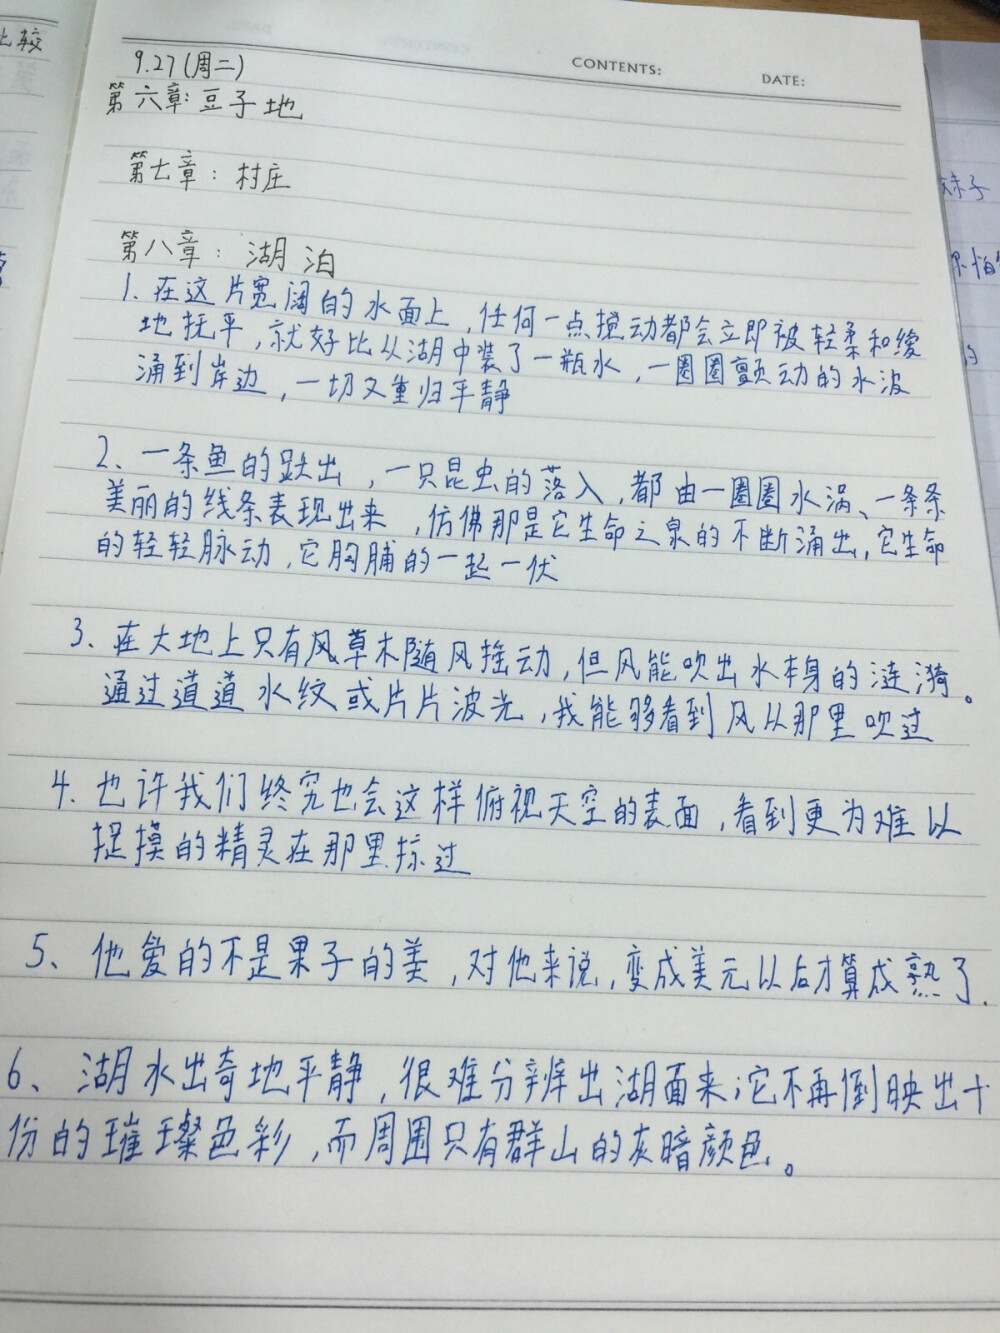 比较
CONTENTS:
DATE:
9.27(周二)
第六章:豆子地
第七章:村庄
第八章:湖泊
1.在这片宽阔的水面上,任何一点搅动都会立即被轻柔和缓
地抚平,就好比从湖中装了一瓶水,一圈圈颤动的水波
涌到岸边,一切又重归平静
2、一条鱼的跃出,一只昆虫的落入,都由一圈圈水涡、一条条
美丽的线条表现出来,仿佛那是它生命之泉的不断涌出,它生命
的轻轻脉动,它胸脯的一起一伏
3、在大地上只有风草木随风摇动,但风能吹出水本身的涟漪。
通过道道水纹或片片波光,我能够看到风从那里吹过
4.也许我们终究也会这样俯视天空的表面,看到更为难以
捉摸的精灵在那里掠过
5、他爱的不是果子的美,对他来说,变成美元以后才算成熟了.
6、湖水出奇地平静,很难分辨出湖面来;它不再倒映出十
份的璀璨色彩,而周围只有群山的灰暗颜色。
妹子
不怕
的